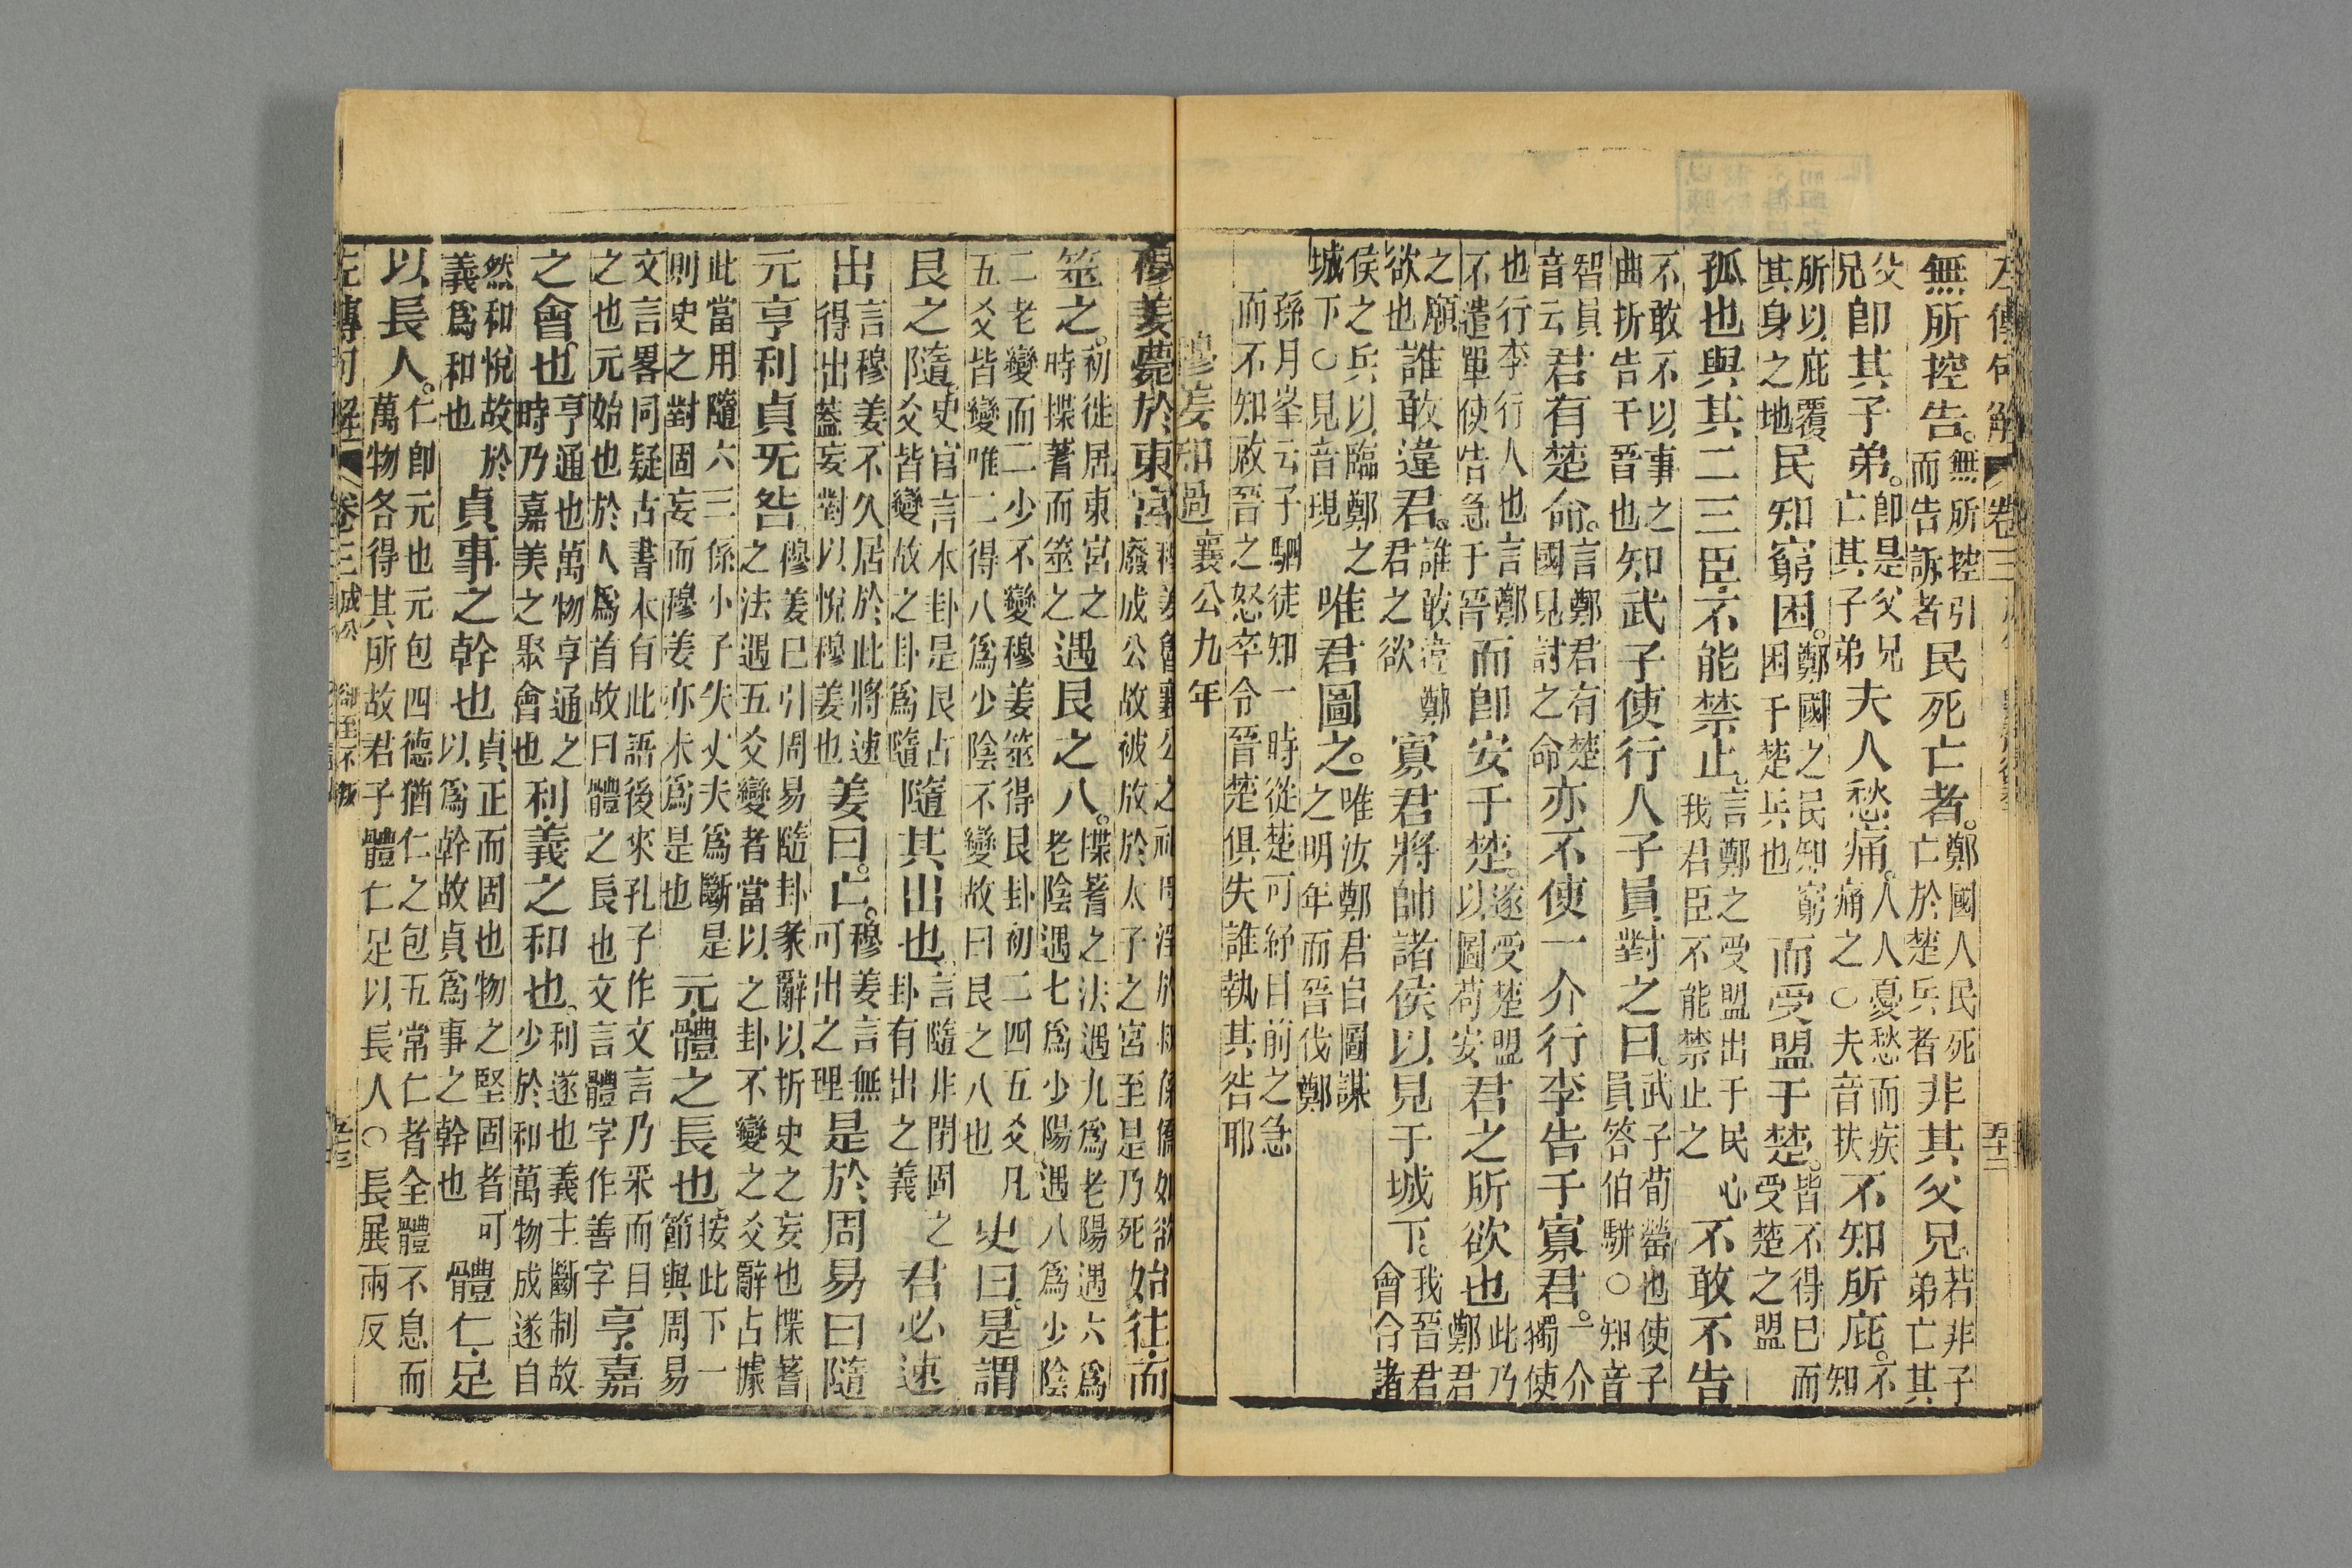 左傳句解 卷三
五十二
無所控告無所控引而告訴者民死亡者鄭國人民死亡於楚兵者非其父兄若非子弟亡其
父兄卽其子弟卽是父兄亡其子弟夫人愁痛人人憂愁而疾痛之○夫音扶不知所庇不知
所以庇覆其身之地民知窮困鄭國之民知窮困于楚兵也而受盟于楚皆不得已而受楚之盟
孤也與其二三臣不能禁止言鄭之受盟出于民心我君臣不能禁止之不敢不告
不敢不以事之曲折告于晉也知武子使行人子員對之曰武子荀罃也使子員答伯駢○知音
智員音云君有楚命言鄭君有楚國見討之命亦不使一介行李告于寡君一介獨使
也行李行人也言鄭不遣單使告急于晉而卽安于楚遂受楚盟以圖苟安君之所欲也此乃鄭君
之願欲也誰敢違君誰敢違鄭君之欲寡君將帥諸侯以見于城下我晉君會合諸
侯之兵以臨鄭之城下○見音現唯君圖之唯汝鄭君自圖謀之明年而晉伐鄭
孫月峯云子駟徒知一時從楚可紓目前之急而不知啟晉之怒卒令晉楚俱失誰執其咎耶
穆姜知過襄公九年
穆姜薨於東宮穆姜魯襄公之祖母淫於叔僑如欲廢成公故被放於太子之宮至是乃死始往而
筮之初徙居東宮之時揲蓍而筮之遇艮之八揲蓍之法遇九爲老陽遇六爲老陰遇七爲少陽遇八爲少陰
二老變而二少不變穆姜筮得艮卦初二四五爻凡五爻皆變唯二得八爲少陰不變故曰艮之八也史曰是謂
艮之隨史官言本卦是艮占爻皆變故之卦爲隨隨其出也言隨非閉固之卦有出之義君必速
出言穆姜不久居於此將速得出蓋妄對以悅穆姜也姜曰亡穆姜言無可出之理是於周易曰隨
元亨利貞无咎穆姜已引周易隨卦彖辭以折史之妄也揲蓍之法遇五爻變者當以之卦不變之爻辭占據
此當用隨六三係小子失丈夫爲斷是則史之對固妄而穆姜亦未爲是也元體之長也按此下一節與周易
文言畧同疑古書本有此語後來孔子作文言乃釆而目之也元始也於人爲首故曰體之長也文言體字作善字亨嘉
之會也亨通也萬物亨通之時乃嘉美之聚會也利義之和也利遂也義主斷制故少於和萬物成遂自
然和悅故於義爲和也貞事之幹也貞正而固也物之堅固者可以爲幹故貞爲事之幹也體仁足
以長人仁卽元也元包四德猶仁之包五常仁者全體不息而萬物各得其所故君子體仁足以長人○長展兩反
左傳句解 卷三 成公
五十三